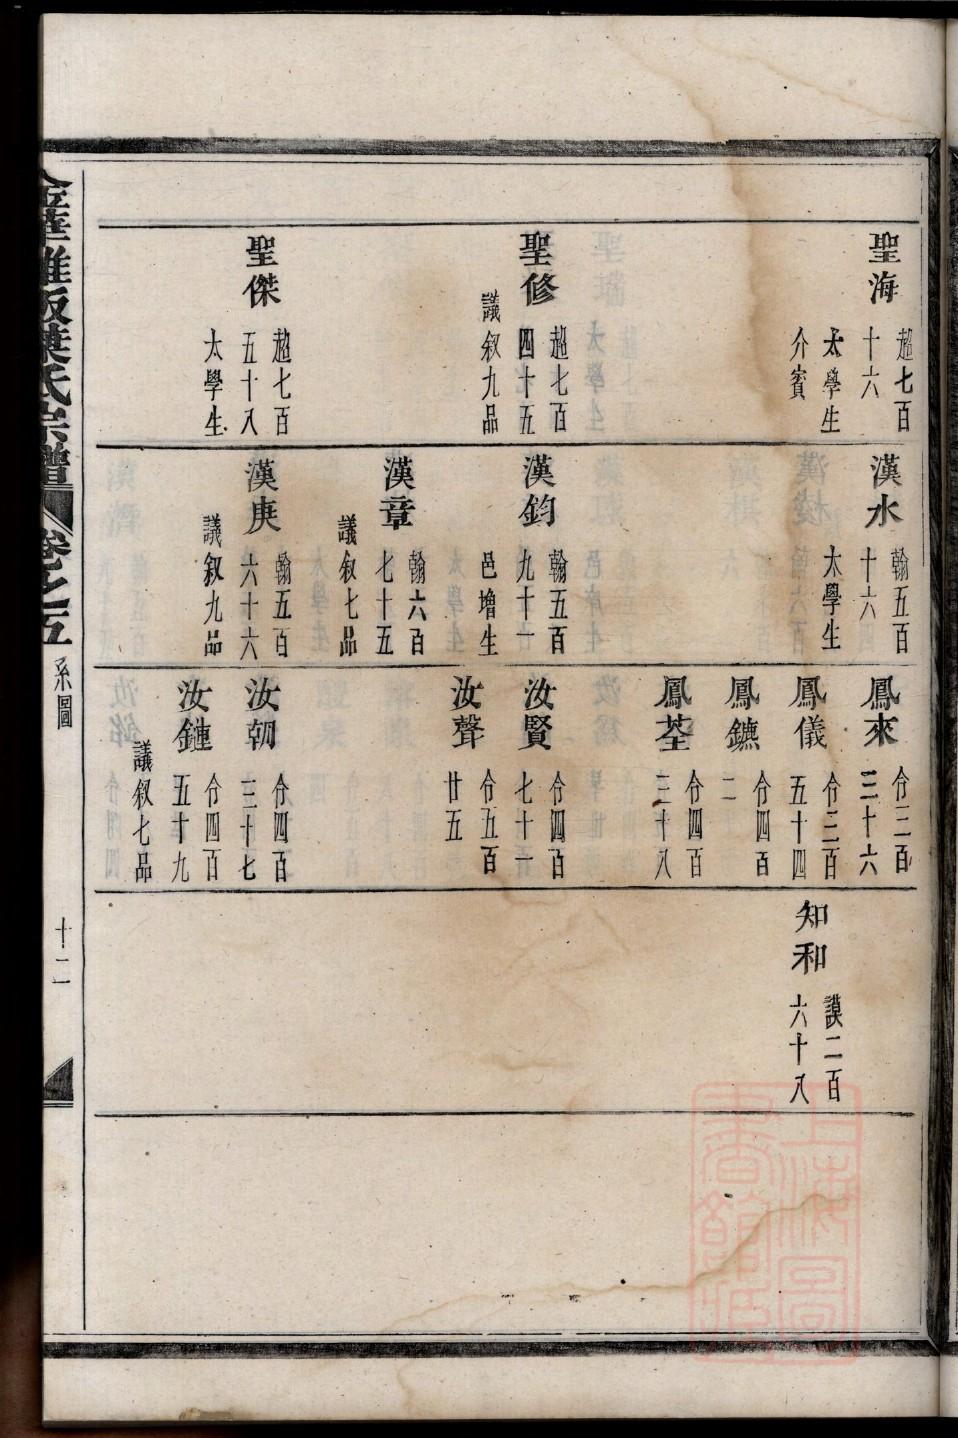 聖海
超七百
十六
太學生
介賓
聖修
超七百
四十五
議叙九品
聖傑
超七百
五十八
太學生
漢水
翰五百
十六
太學生
漢鈞
翰五百
九十一
邑增生
漢章
翰六百
七十五
議叙七品
漢庚
翰五百
六十六
議叙九品
鳳來
仱三百
三十六
鳳儀
仱三百
五十四
鳳鑣
仱四百
二
鳳荃
仱四百
三十八
汝賢
仱四百
七十一
汝聲
仱五百
廿五
汝朝
仱四百
三十七
汝鏈
仱四百
五十九
議叙七品
知和
謨二百
六十八
葉氏宗譜
卷之五
系圖
十二
上海圖書館藏